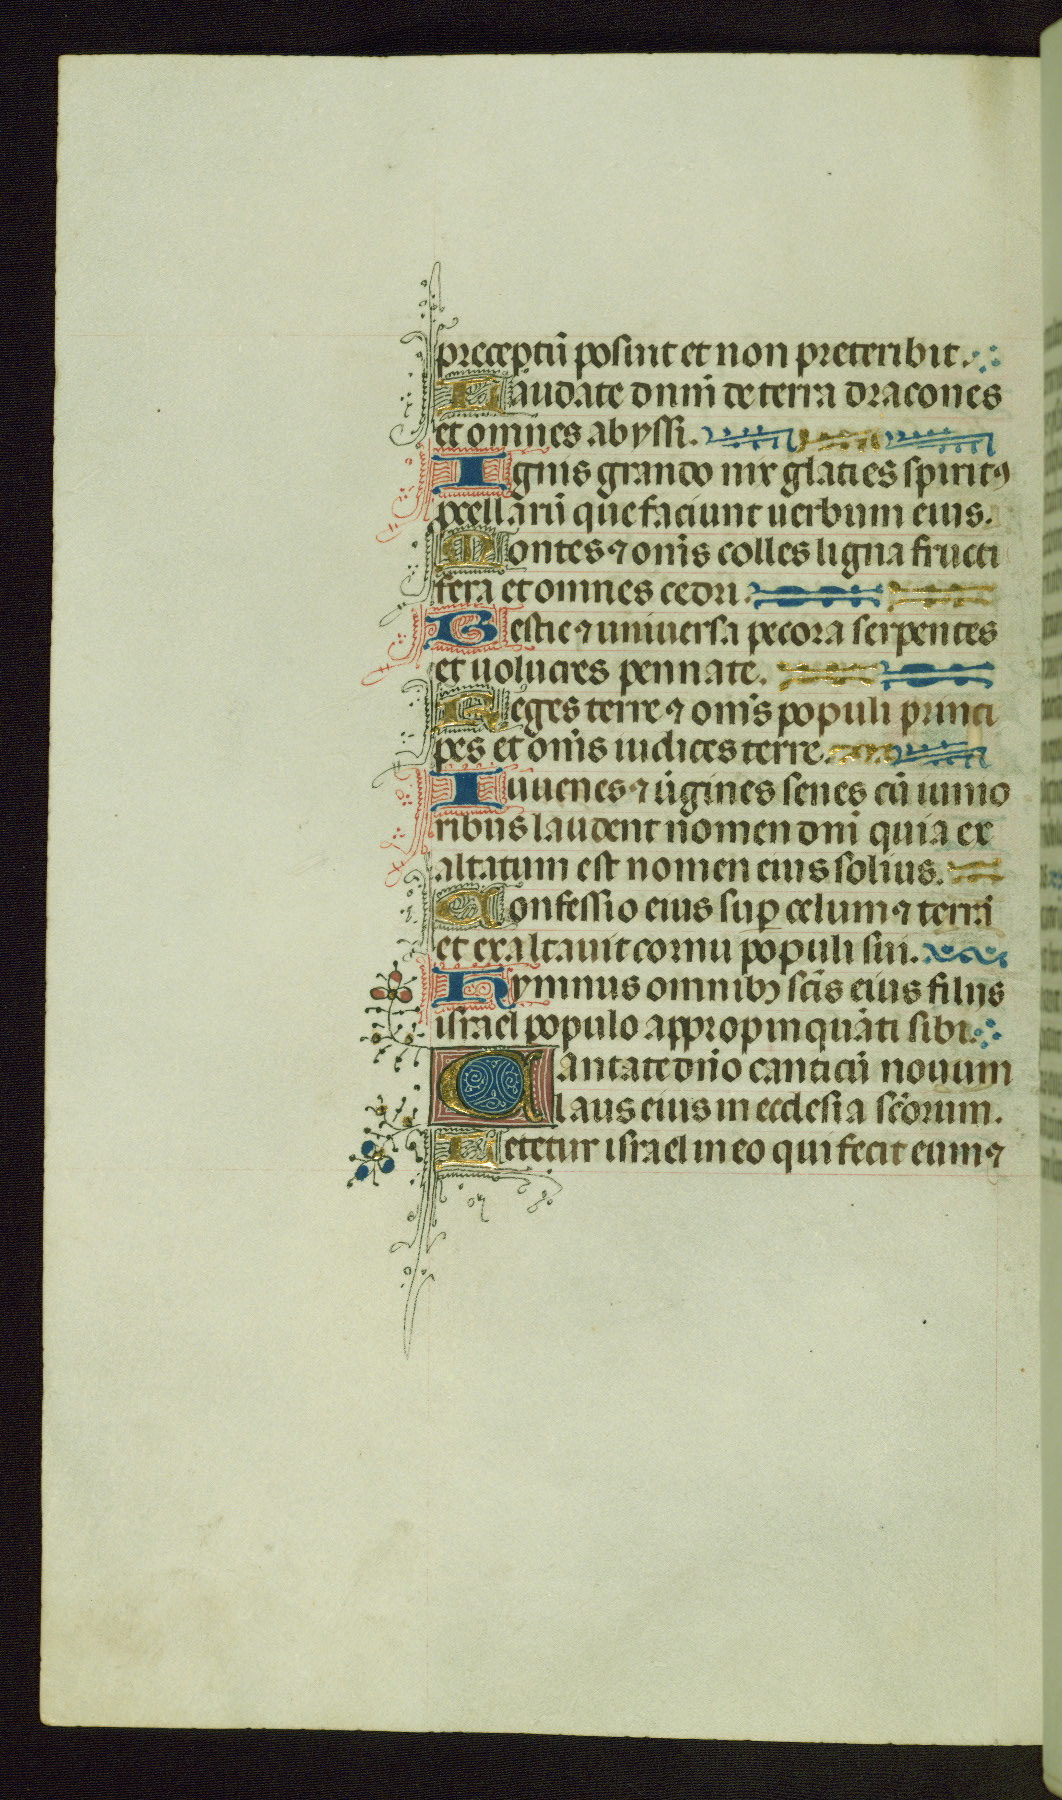 preceptū posuit et non preteribit.
Laudate dnm̄ de terra dracones
et omnes abyssi.
Ignis grando nix glacies spiritꝰ
procellarū que faciunt uerbum eius.
Montes ⁊ om̄s colles ligna fructi
fera et omnes cedri.
Bestie ⁊ uniuersa pecora serpentes
et uolucres pennate.
Reges terre ⁊ om̄s populi princi
pes et om̄s iudices terre.
Iuuenes ⁊ u̇gines senes cū iunio
ribus laudent nomen dn̄i quia ex
altatum est nomen eius solius.
Confessio eius suꝑ celum ⁊ terrā
et exaltauit cornu populi sui.
Hymnus omnibꝫ sc̄is eius filiis
israel populo appropinquāti sibi.
Cantate dn̄o canticū nouum
laus eius in ecclesia sc̄orum.
Letetur israel in eo qui fecit eum ⁊